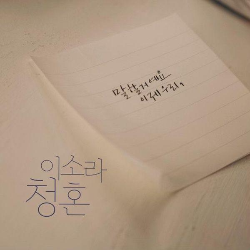 말할거예요
이제 우리,
이소라
청혼